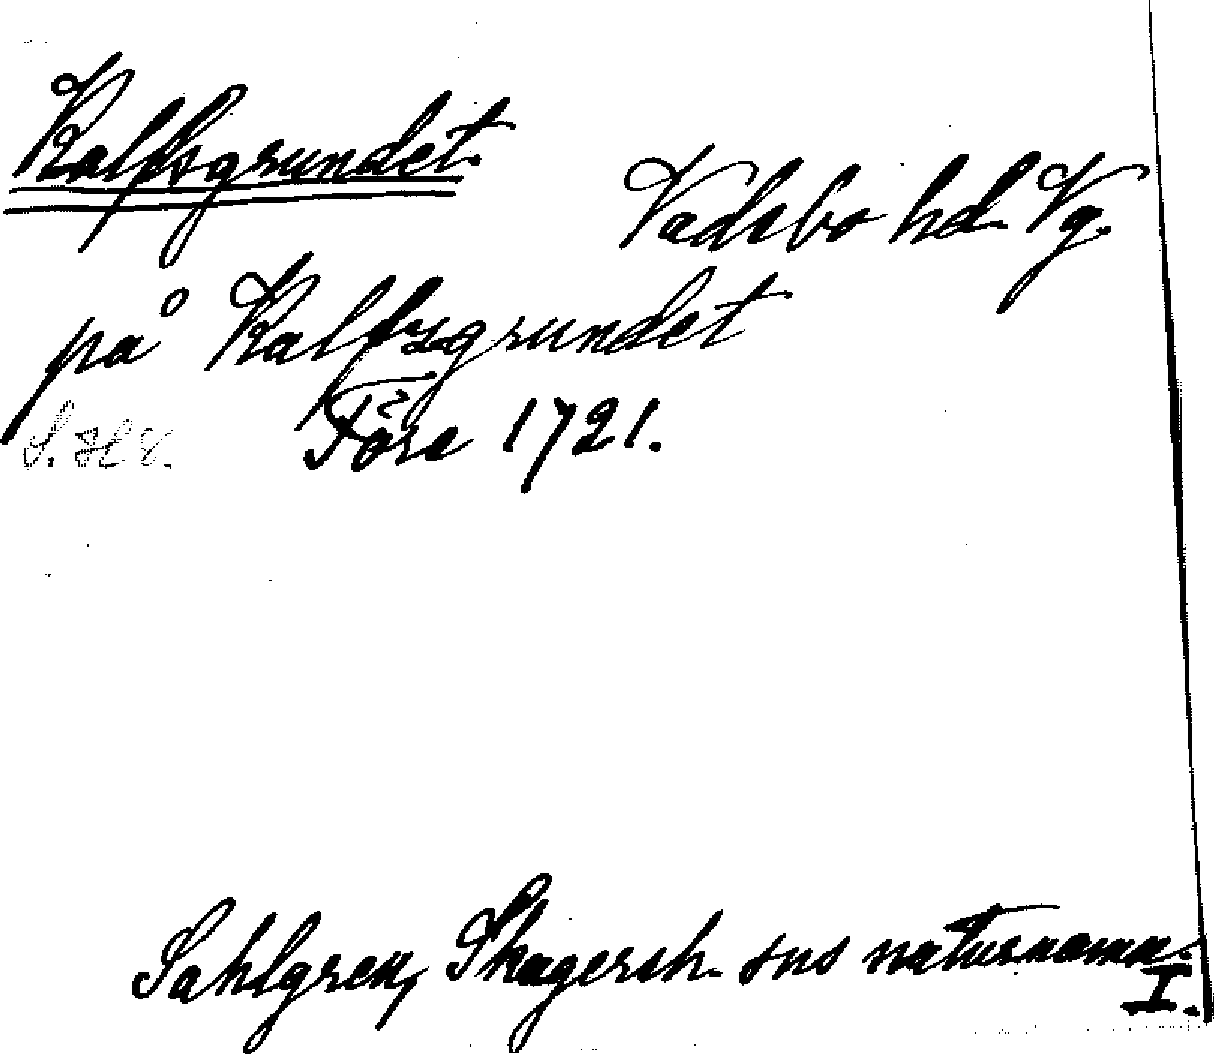 Kalfsgrundet.
Vadsbo hd. Vg.
på Kalfzgrundet
Töre 1721.
Sahlgren, Skagersh. sns naturnamn.
I.